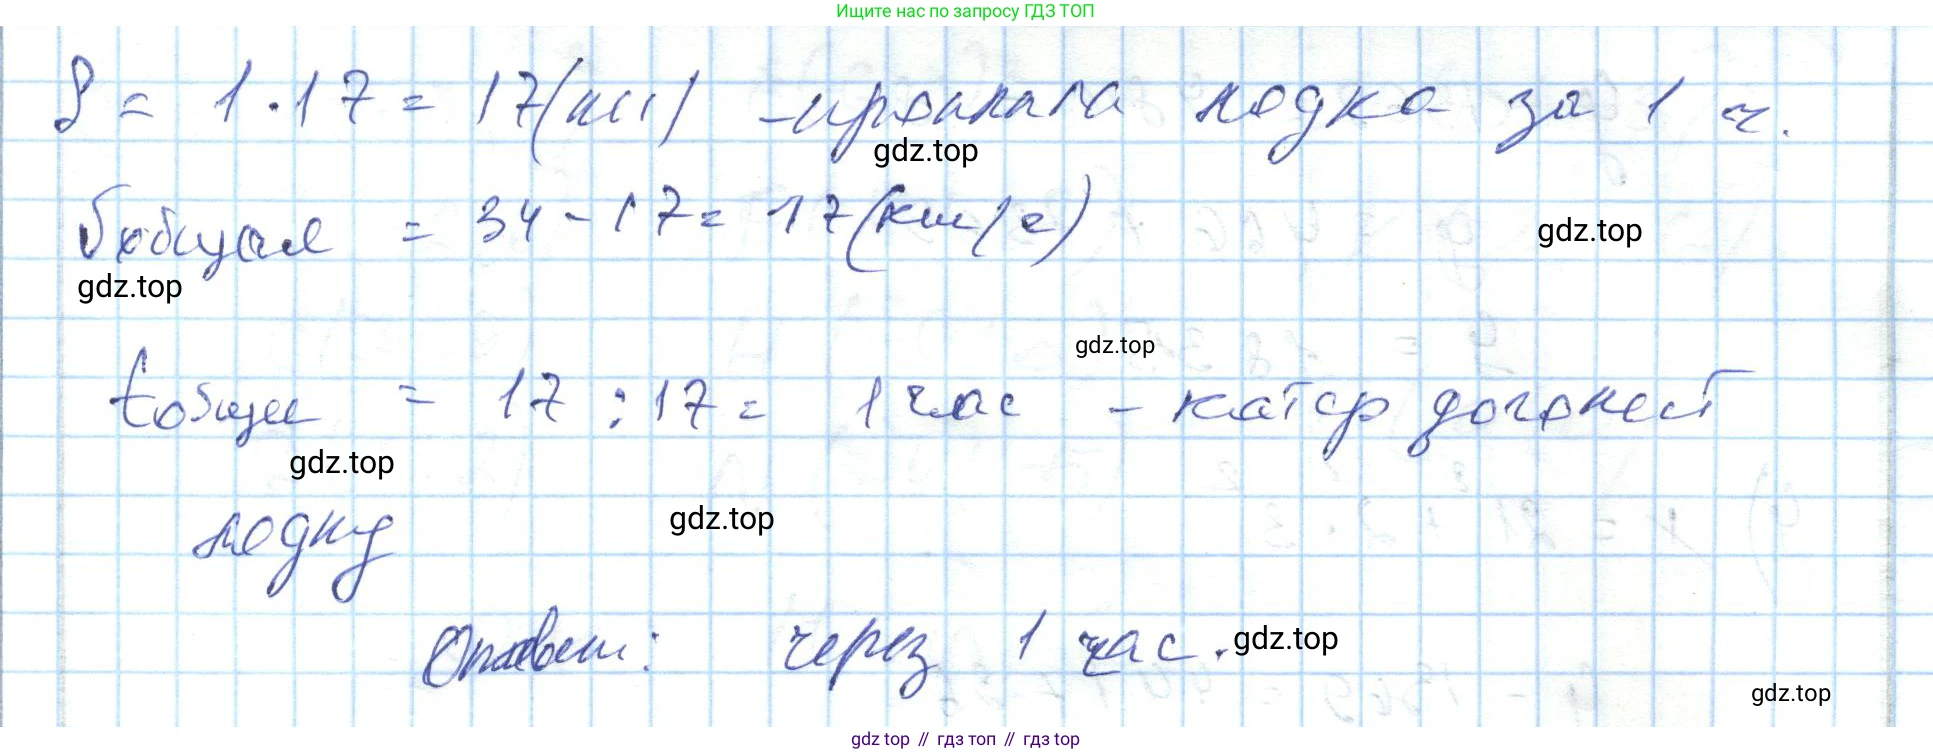 Ищите нас по запросу ГДЗ ТОП
S = 1 · 17 = 17 (км) - проплыла лодка за 1 ч.
gdz.top
υобщая = 34 - 17 = 17 (км/ч)
gdz.top
gdz.top
gdz.top
tобщее = 17 : 17 = 1 час - катер догонет
gdz.top
лодку
gdz.top
Ответ: через 1 час.
gdz.top
gdz.top
gdz.top // гдз топ // гдз.top